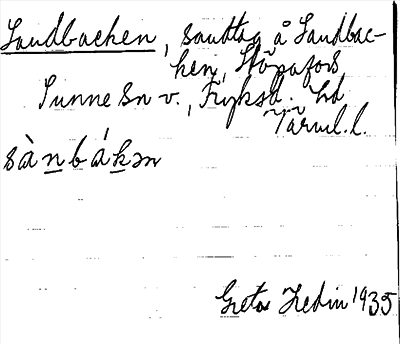 Sandbacken, sandtag å Sandbac-
ken, Stöpafors
Sunne sn v., Fryksd. hd
Värml. l.
sànbákən
Greta Hedin 1935